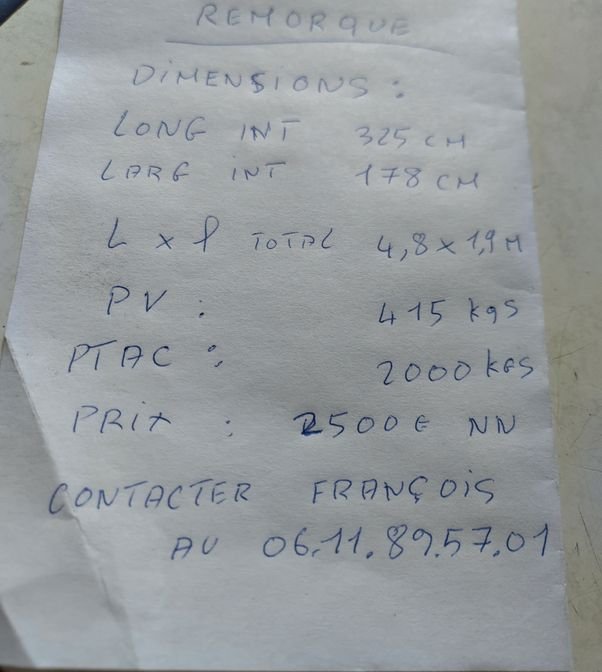 REMORQUE
DIMENSIONS :
LONG INT 325 CM
LARG INT 178 CM
L x l TOTAL 4,8 x 1,9 M
PV : 415 kgs
PTAC : 2000 kGS
PRIX : 2500€ NN
CONTACTER FRANÇOIS
AU 06.11.89.57.01